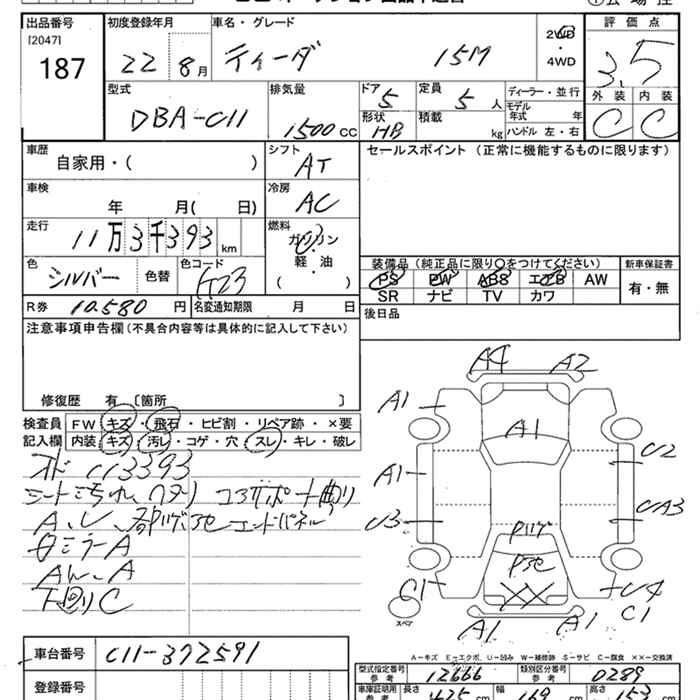 出品番号 初度登録年月 車名・グレード 2WD 評価点
[2047] ・
187 22 8月 ティーダ 15M 4WD 3.5
型式 排気量 ドア 定員 ディーラー・並行 外装 内装
DBA-C11 1500CC 5 5人 モデル年式 年 C C
形状 HB 積載 kg ハンドル 左・右
車歴 シフト セールスポイント(正常に機能するものに限ります)
自家用・( ) AT
車検 冷房
年 月( 日) AC
走行 燃料
11万3千393km ガソリン
軽・油
( )
色 色コード 装備品(純正品に限り○をつけてください) 新車保証書
シルバー 色替 K23 PS PW ABS エアB AW 有・無
SR ナビ TV カワ
R券 10.580円 名変通知期限 月 日 後日品
注意事項申告欄(不具合内容等は具体的に記入して下さい)
修復歴 有 〔箇所 〕
検査員 FW キズ・飛石・ヒビ割・リペア跡・×要
記入欄 内装 キズ・汚レ・コゲ・穴・スレ・キレ・破レ
113393
シート汚れ
エンドパネル
ミラーA
下回りC
A4 A2
A1
A1
A1
U2
U3
UA3
U4
C1
C1
スペア
A1
A1
A-キズ E-エクボ U-凹み W-補修跡 S-サビ C-腐食 ××-交換済
車台番号 C11-372591
型式指定番号 参考 12666 類別区分番号 参考 0289
登録番号
車庫証明用 参考 長さ 425cm 幅 169cm 高さ 153cm